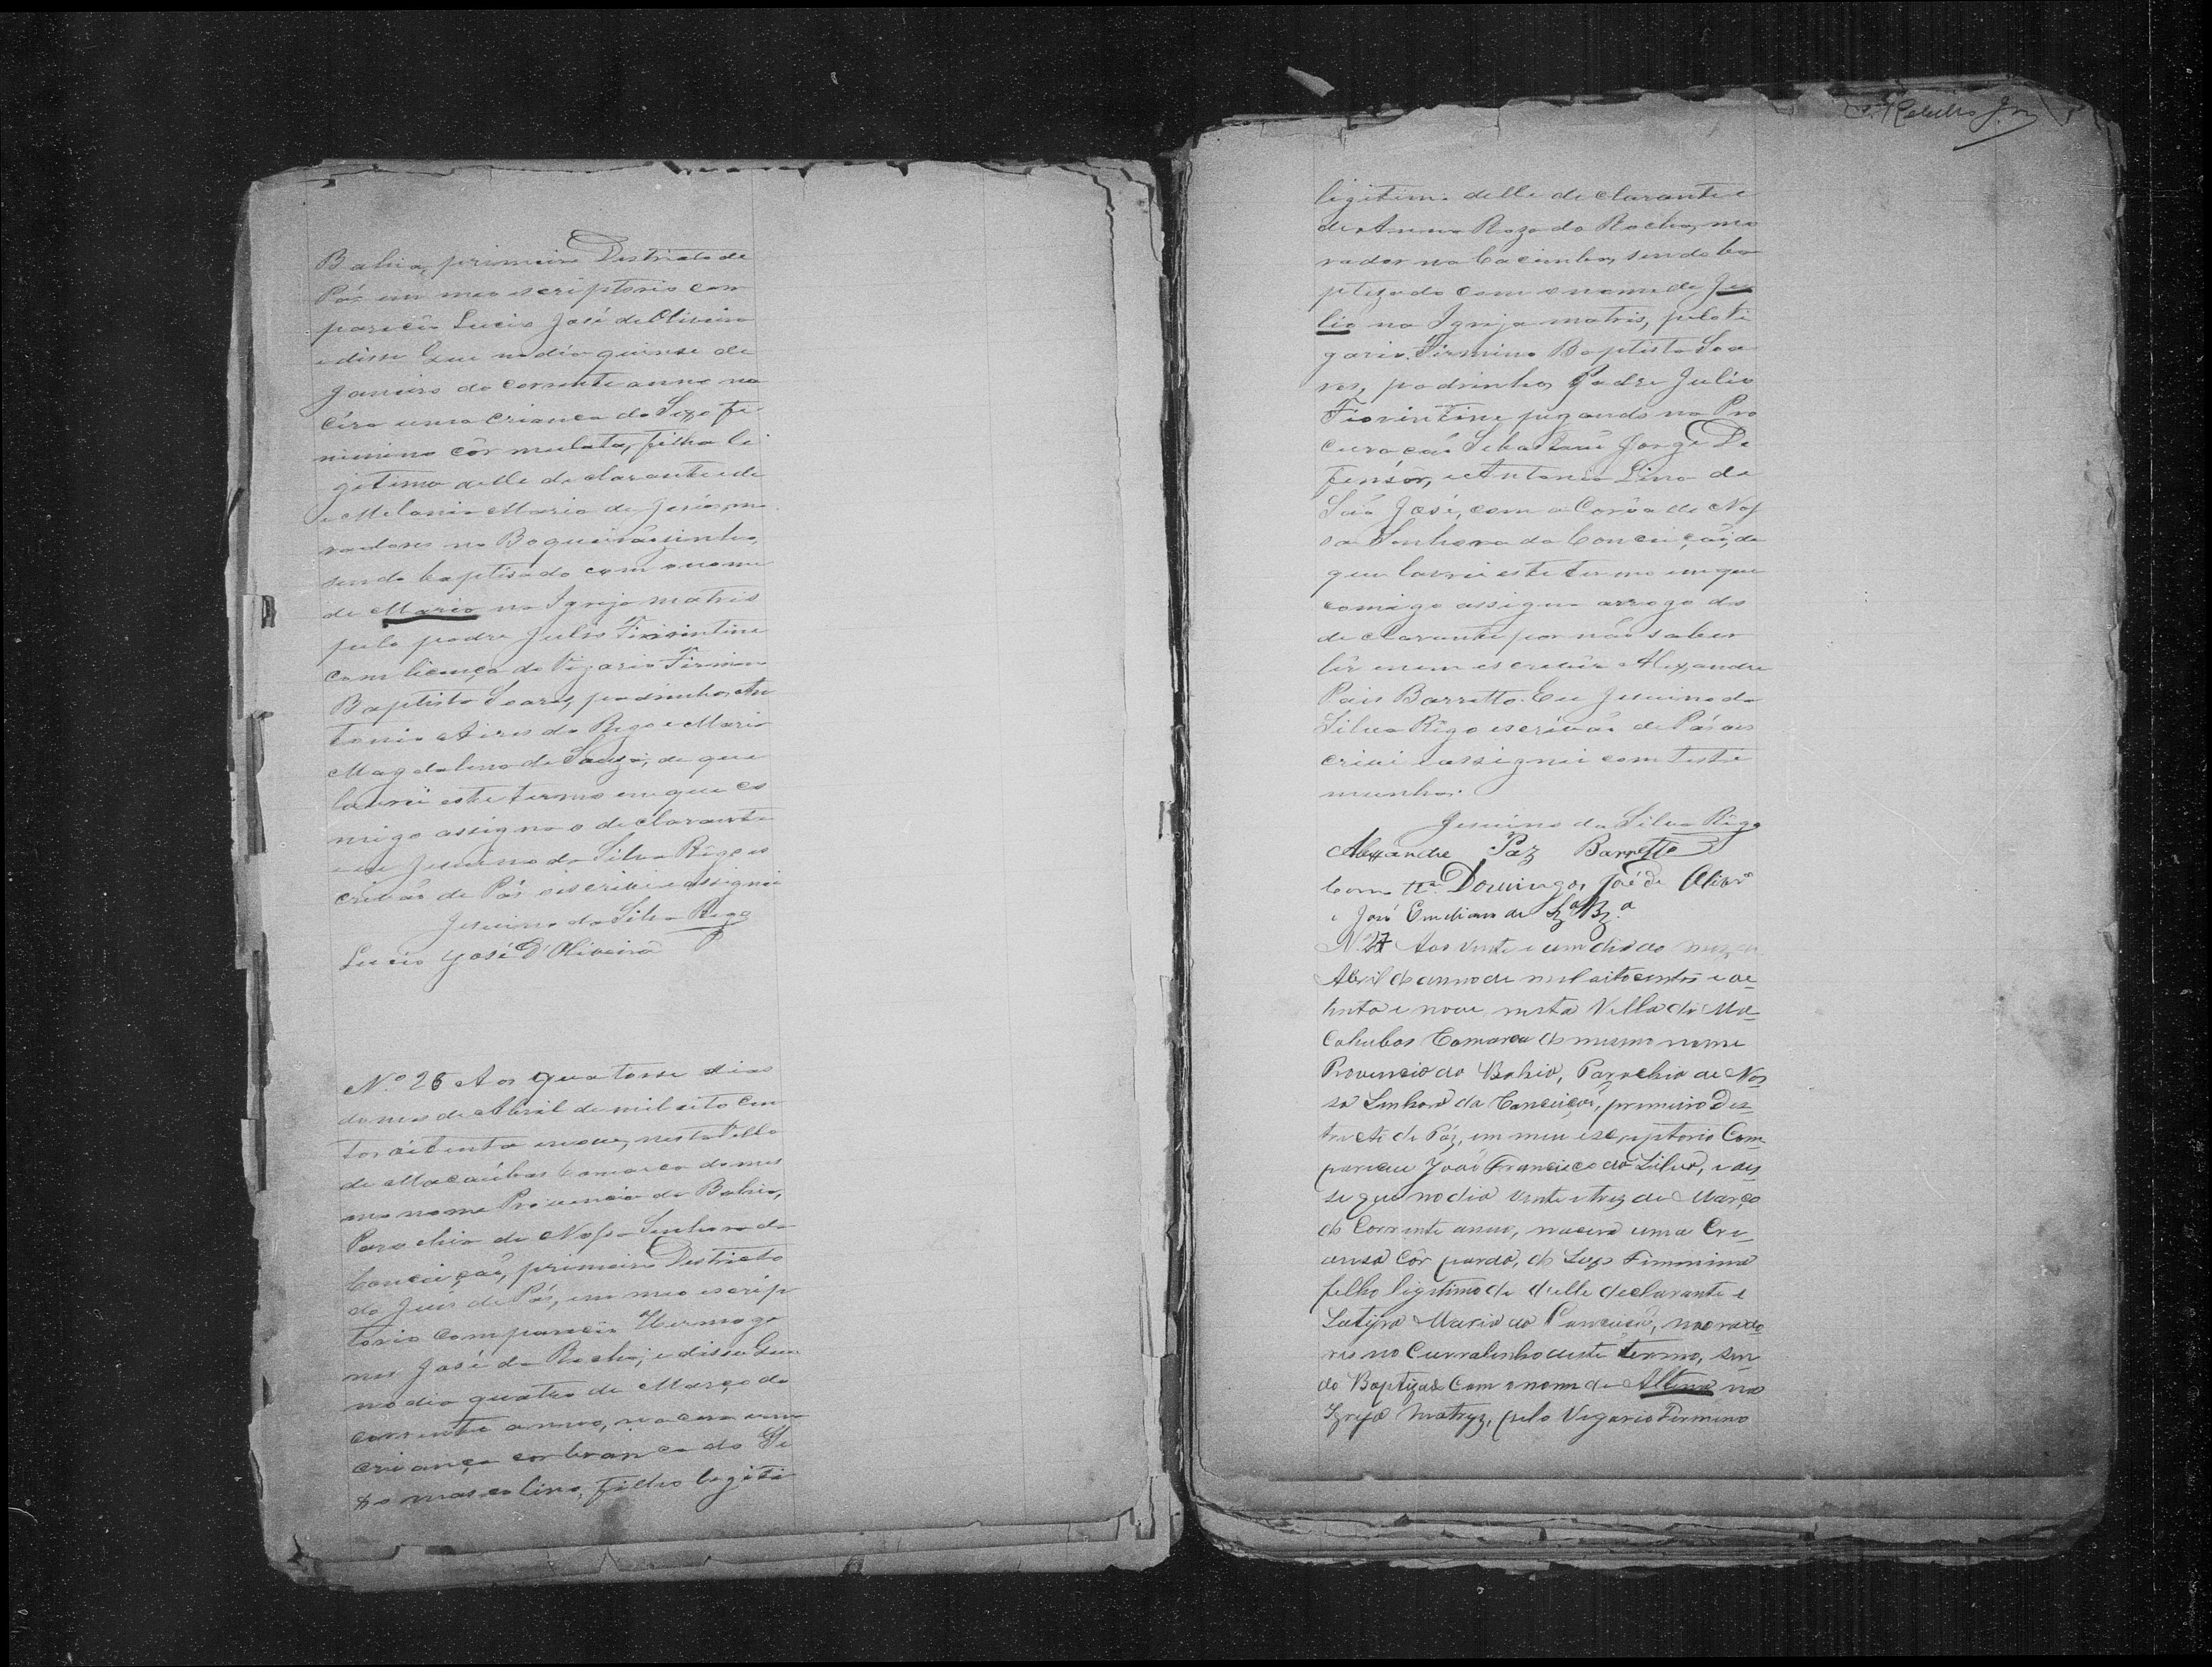 Bahia, primeiro Districto de
Pás em meo escriptorio com
pareceu Lucio José de Oliveira
e disse Que no dia quinse de
Janeiro do corrente anno na
cêra uma crianca do Sexo fe
minino côr mulata, filha li
gitima delle declarante e de
Melania Maria de Jesús, mo
radores no Boqueirãosinho,
sendo baptisado com o nome
de Maria na Igreja matris
pelo padre Julio Fiorintine
com licença do Vigario Firmino
Baptista Soares, padrinhos An
tonio Aires do Rego e Maria
Magdalena de Souza, de que
lavrei este termo em que co
migo assigna o declarante
e eu Jesuino da Silva Rêgo es
crivão de Pás escrivi e assignei
Jesuino da Silva Rego
Lucio José D'Oliveira
N.º 26 Aos quatorse dias
do mes de Abril de mil oito cen
tos oitenta e nove, nesta Villa
de Macaúbas Comarca do mes
mo nome Provincia da Bahia,
Parochia de Nossa Senhora da
Conceição, primeiro Districto
do Juis de Pás, em meo escrip
torio compareceu Hermoge
nes José da Rocha; e disse Que
no dia quatro de Março do
corrente anno, nacera uma
criança cor branca do Se
xo masculino, filho legiti
C. Rebello Jr
ligitimo delle declarante e
de Anna Roza da Rocha, mo
rador na Cacimba, sendo ba
ptizado com o nome de Ju
lio na Igreja matris, pelo Vi
gario Firmino Baptista Soa
res, padrinhos Padre Julio
Fiorintine pegando na Pro
curação Sebastião Jorge De
fensôr, e Antonio Lino de
São José, com a Corôa de Nos
sa Senhora da Conceição, de
que lavrei este termo em que
comigo assigna arrogo do
declarante por não saber
lêr enem escrever Alexandre
Pais Barretto. Eu Jesuino da
Silva Rêgo escrivão de Pás es
crivi e assignei com teste
munhas.
Jesuino da Silva Rêgo
Alexandre Paz Barretto
Como tª. Domingos José de Olivrª
e José Emidiano de
N. 27 Aos vinte e um dia do mez
Abril do anno de mil oitocentos e oi
tenta e nove, nesta Villa de Ma
cahubas Comarca do mesmo nome
Provencia da Bahia, Parochia de Nos
sa Senhora da Conceição, primeiro Dis
tricto de Páz, em meu escriptorio Com
pareceu João Francisco da Silva, e dis
se que no dia vinte e trez de Março
do Corrente anno, nacera uma Cri
ansa Côr parda, do Sexo Fimenina
felha ligitima de delle declarante e
Maria da Conceicão, morado
res no Curralinho deste termo, sen
do Baptizada Com o nome de Altina na
Igreja Matryz, pelo Vigario Firmino